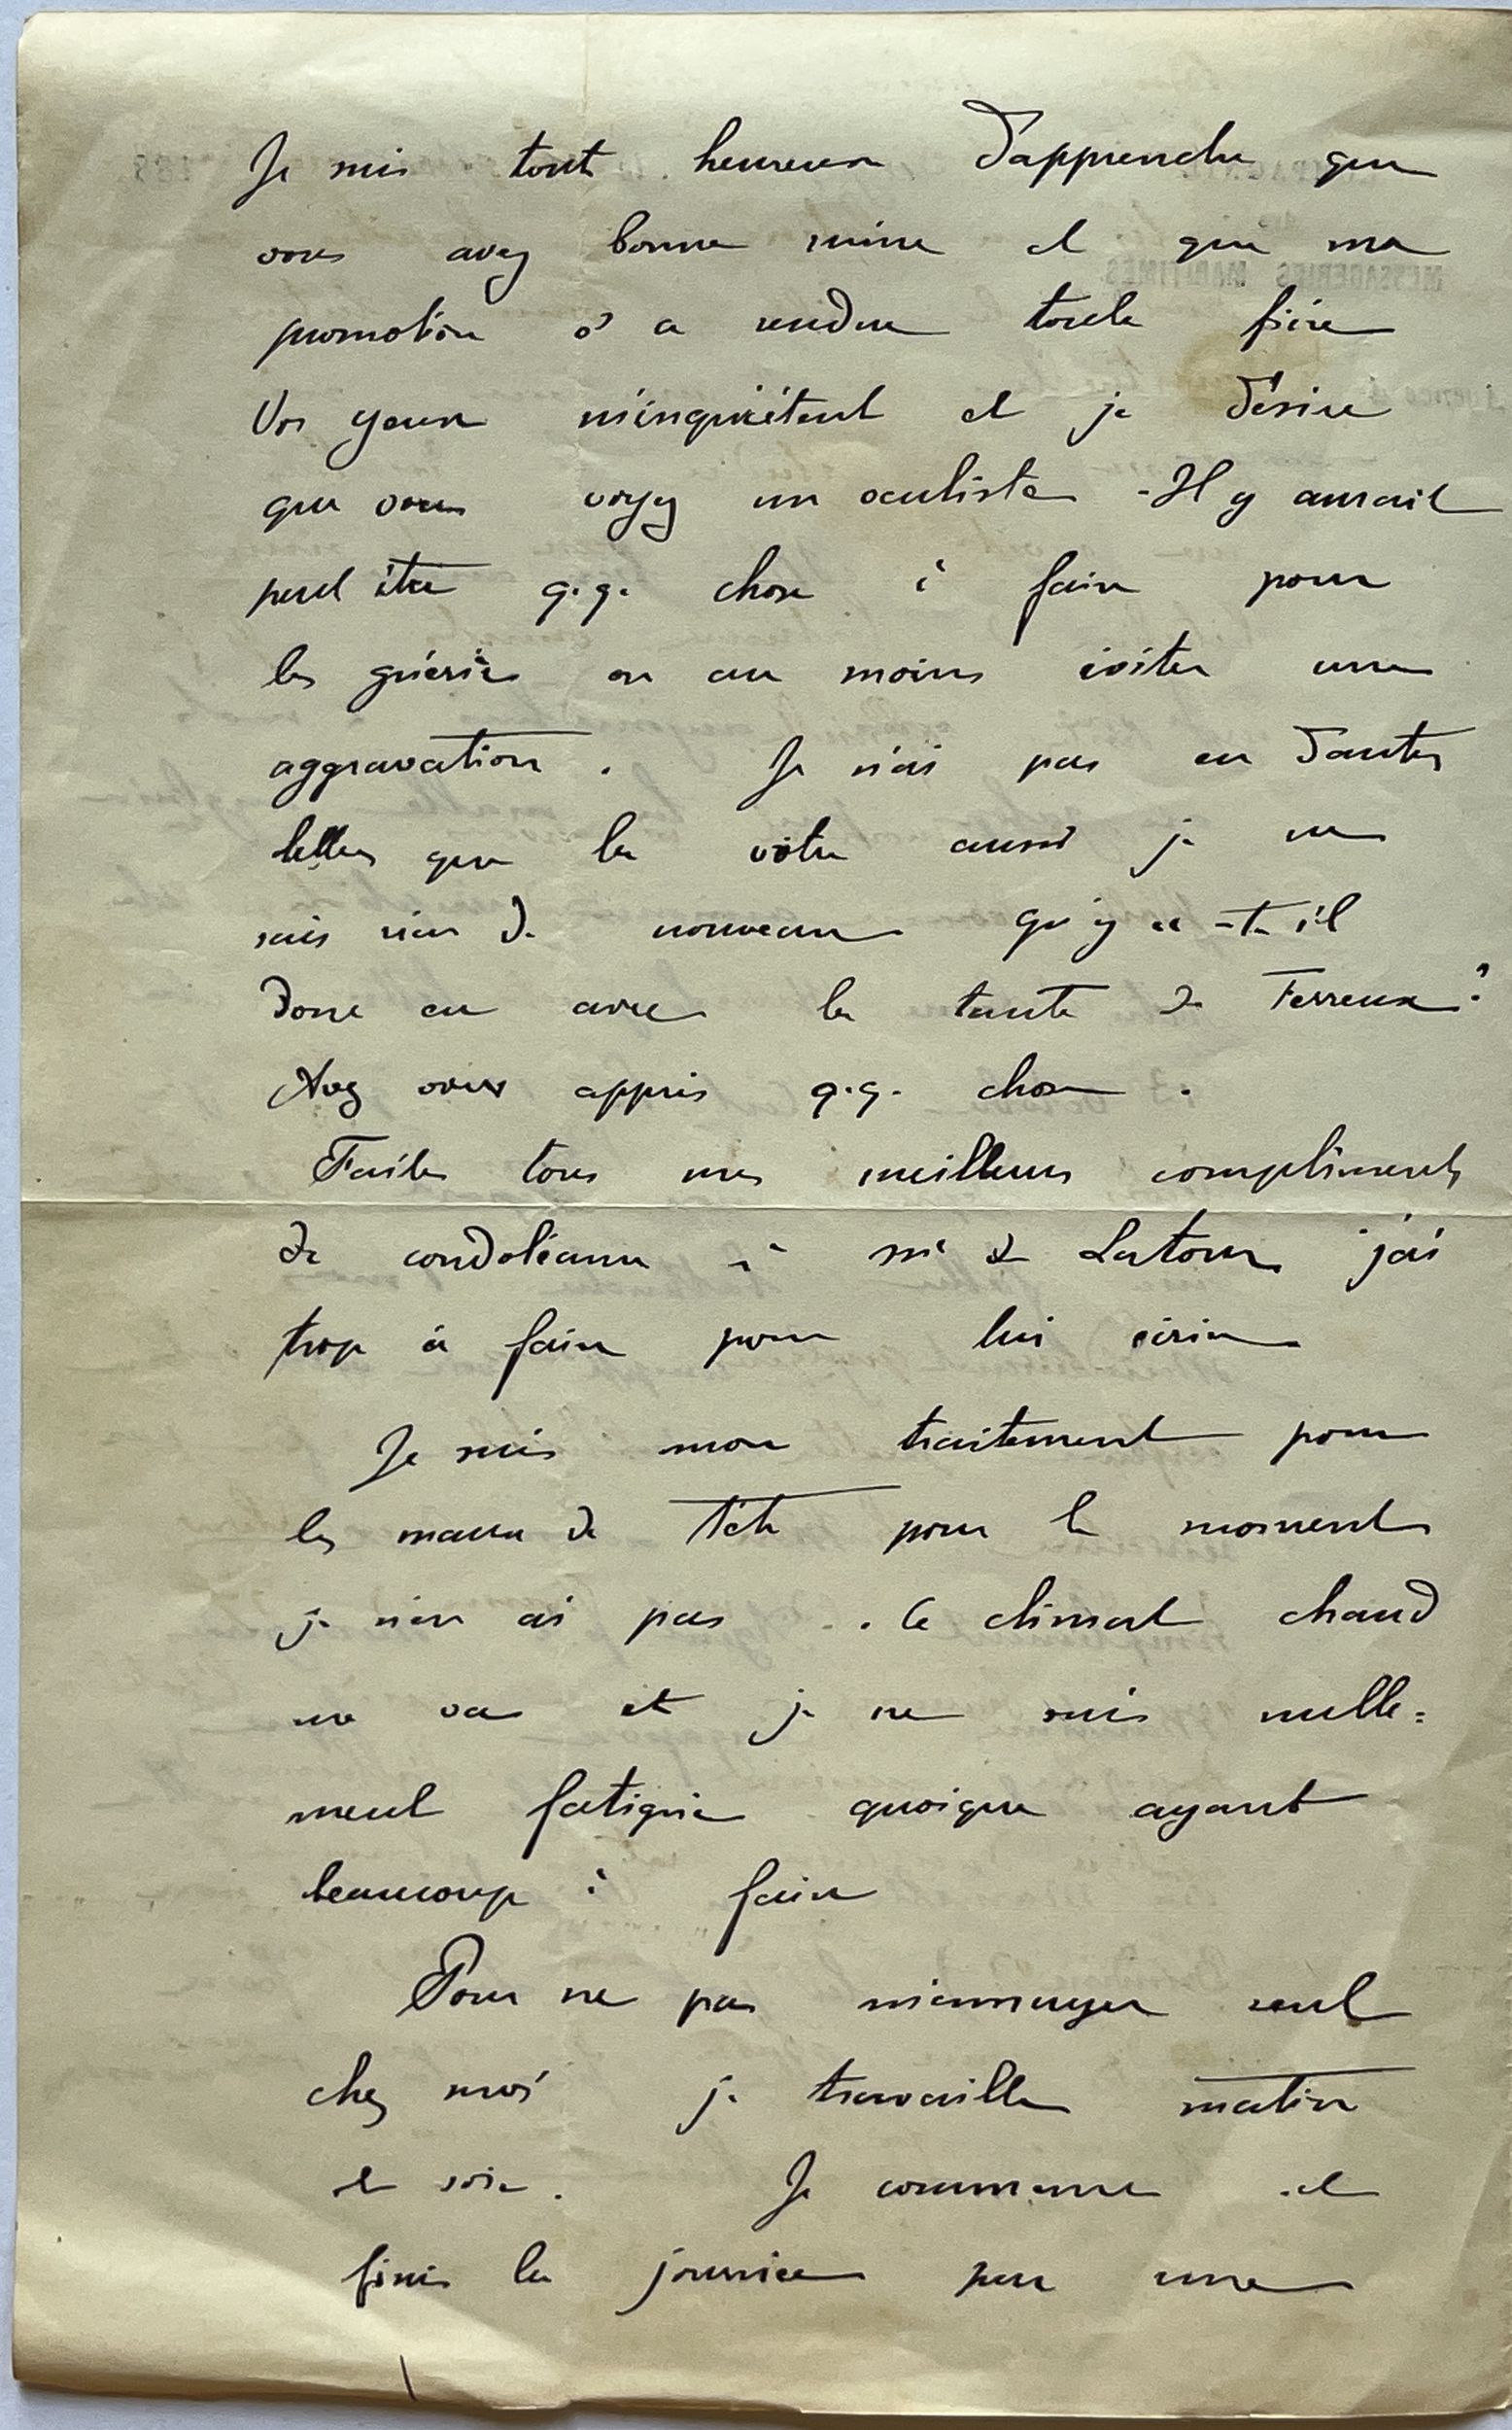 Je suis tout heureux d'apprendre que
vous avez bonne mine et que ma
promotion v^s a rendue toute fière
Vos yeux m'inquiètent et je désire
que vous voyez un oculiste - Il y aurait
peut être q.q. chose à faire pour
les guérir ou au moins éviter une
aggravation. Je n'ai pas eu d'autres
lettres que la vôtre aussi je ne
sais rien de nouveau Qu'y a-t-il
donc eu avec la tante de Ferreux?
Avez vous appris q.q. chose.
Faites tous mes meilleurs compliments
de condoléance à de Latour j'ai
trop à faire pour lui écrire
Je suis mon traitement pour
les maux de tête pour le moment
je n'en ai pas. Le climat chaud
me va et je ne suis nulle=
ment fatigué quoique ayant
beaucoup à faire
Pour ne pas m'ennuyer seul
chez moi je travaille matin
et soir. Je commence et
finis la journée par une
MESSAGERIES MARITIMES